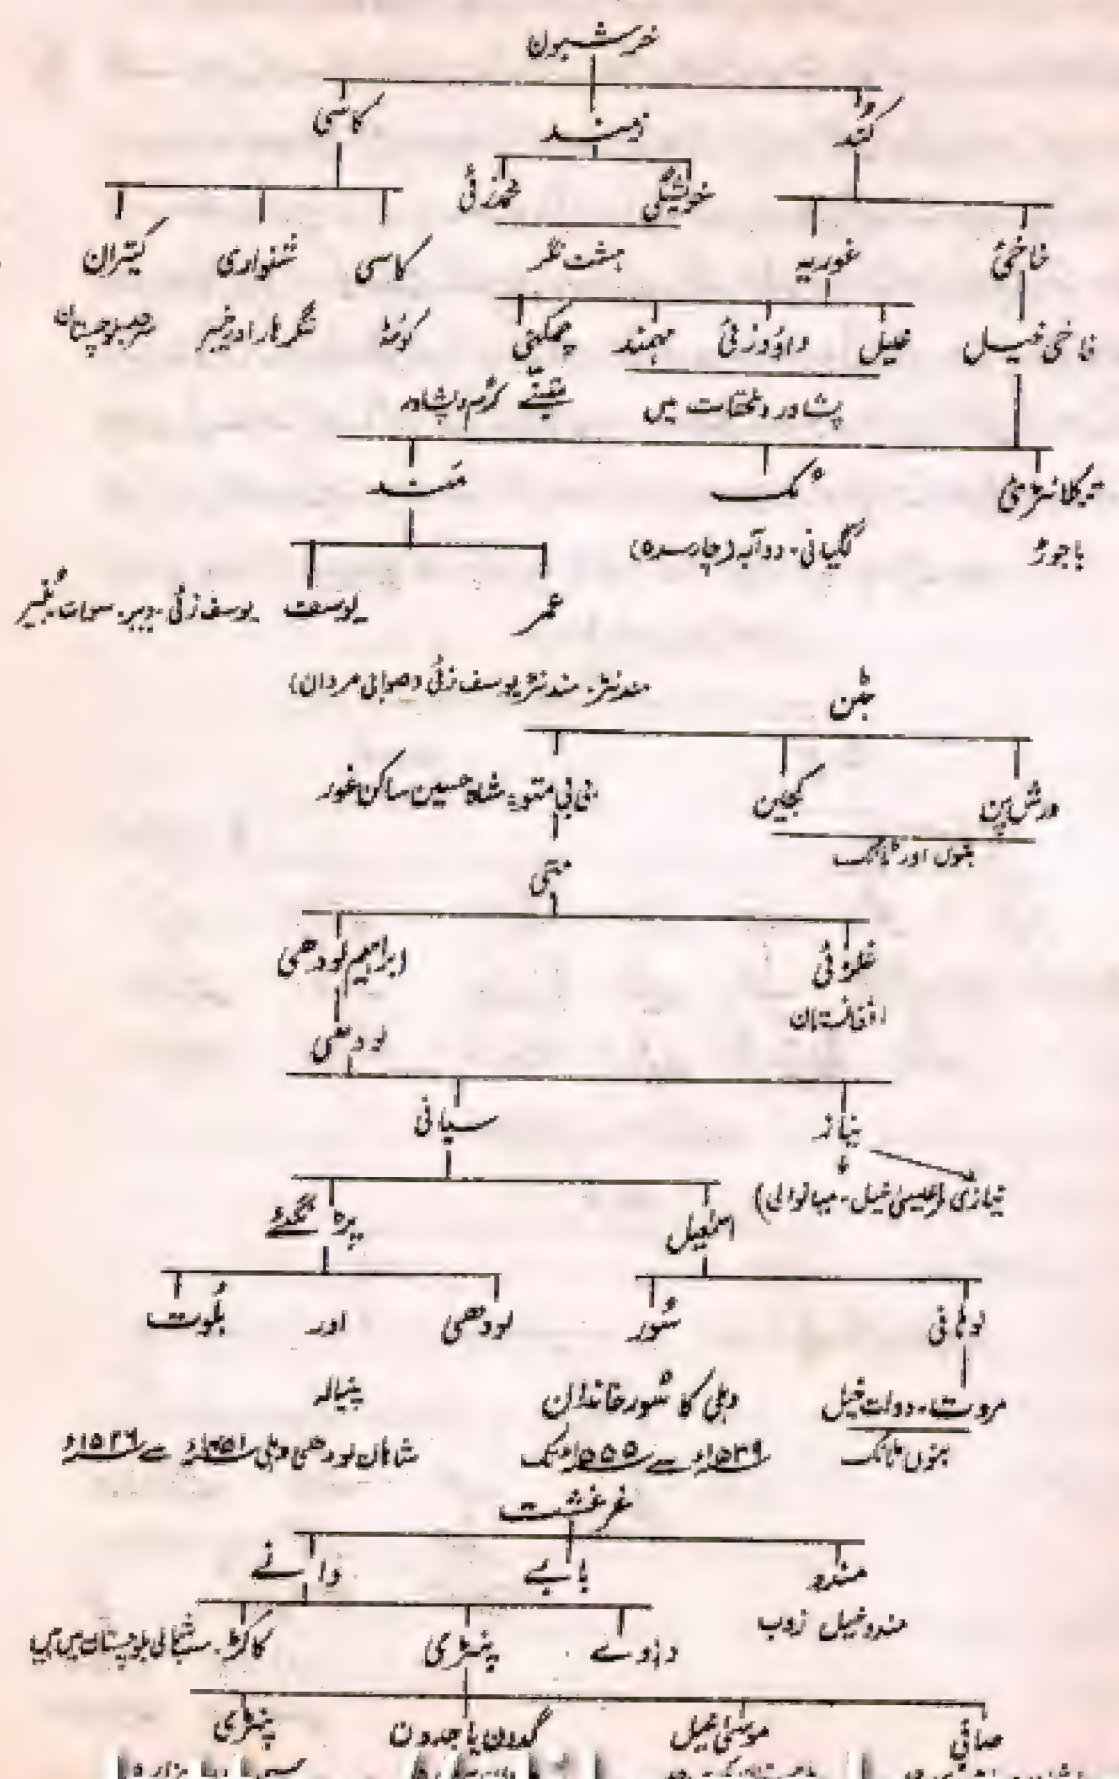 خرشبون
کند زمند کاسی
خویشگی محمدزئی
ہشت نگر
ناخیٔ غوریہ کاسی شنواری کیتران
کوئٹہ ننگرہار اور خیبر سرحد بلوچستان
ناخی خیل خلیل داؤدزئی مہمند چمکنی
پشاور و ملحقات میں کرم و پشاور
ترکلانڑئ مک مند
باجوڑ گگیانی۔ دوآبہ (چارسدہ)
عمر یوسف یوسف زئی۔ دیر۔ سوات۔ بُنیر
مندنڑ۔ مندنڑ یوسف زئی (صوابی مردان)
بٹن
ورش پن کجین بی بی متو۔ شاہ حسین ساکن غور
بنوں اور ٹانک
متی
غلزئی ابراہیم لودھی
افغانستان
لودھی
نیاز سیانی
نیازی (عیسیٰ خیل۔ میانوالی)
اسمٰعیل پڑہنگے
لوہانی سُور لودھی اور بلوت
مروت۔ دولت خیل دہلی کا سُور خاندان پنیالہ
بنوں ٹانک ۱۵۳۹ء سے ۱۵۵۵ء تک شاہان لودھی دہلی ۱۴۵۱ء سے ۱۵۲۶ء
غرغشت
مندو بابے دانے
مندوخیل ژوب
داوے پنڑی کاکڑ۔ شمالی بلوچستان میں ہیں
صافی موسیٰ خیل گدون یا جدون پنڑی